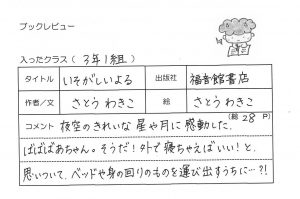 ブックレビュー
入ったクラス（ 3年1組 ）
タイトル いそがしいよる 出版社 福音館書店
作者／文 さとう わきこ 絵 さとう わきこ
（総 28 P）
コメント 夜空のきれいな星や月に感動した、
ばばばあちゃん。そうだ！外で寝ちゃえばいい！と、
思いついて、ベッドや身の回りのものを運び出すうちに…?!